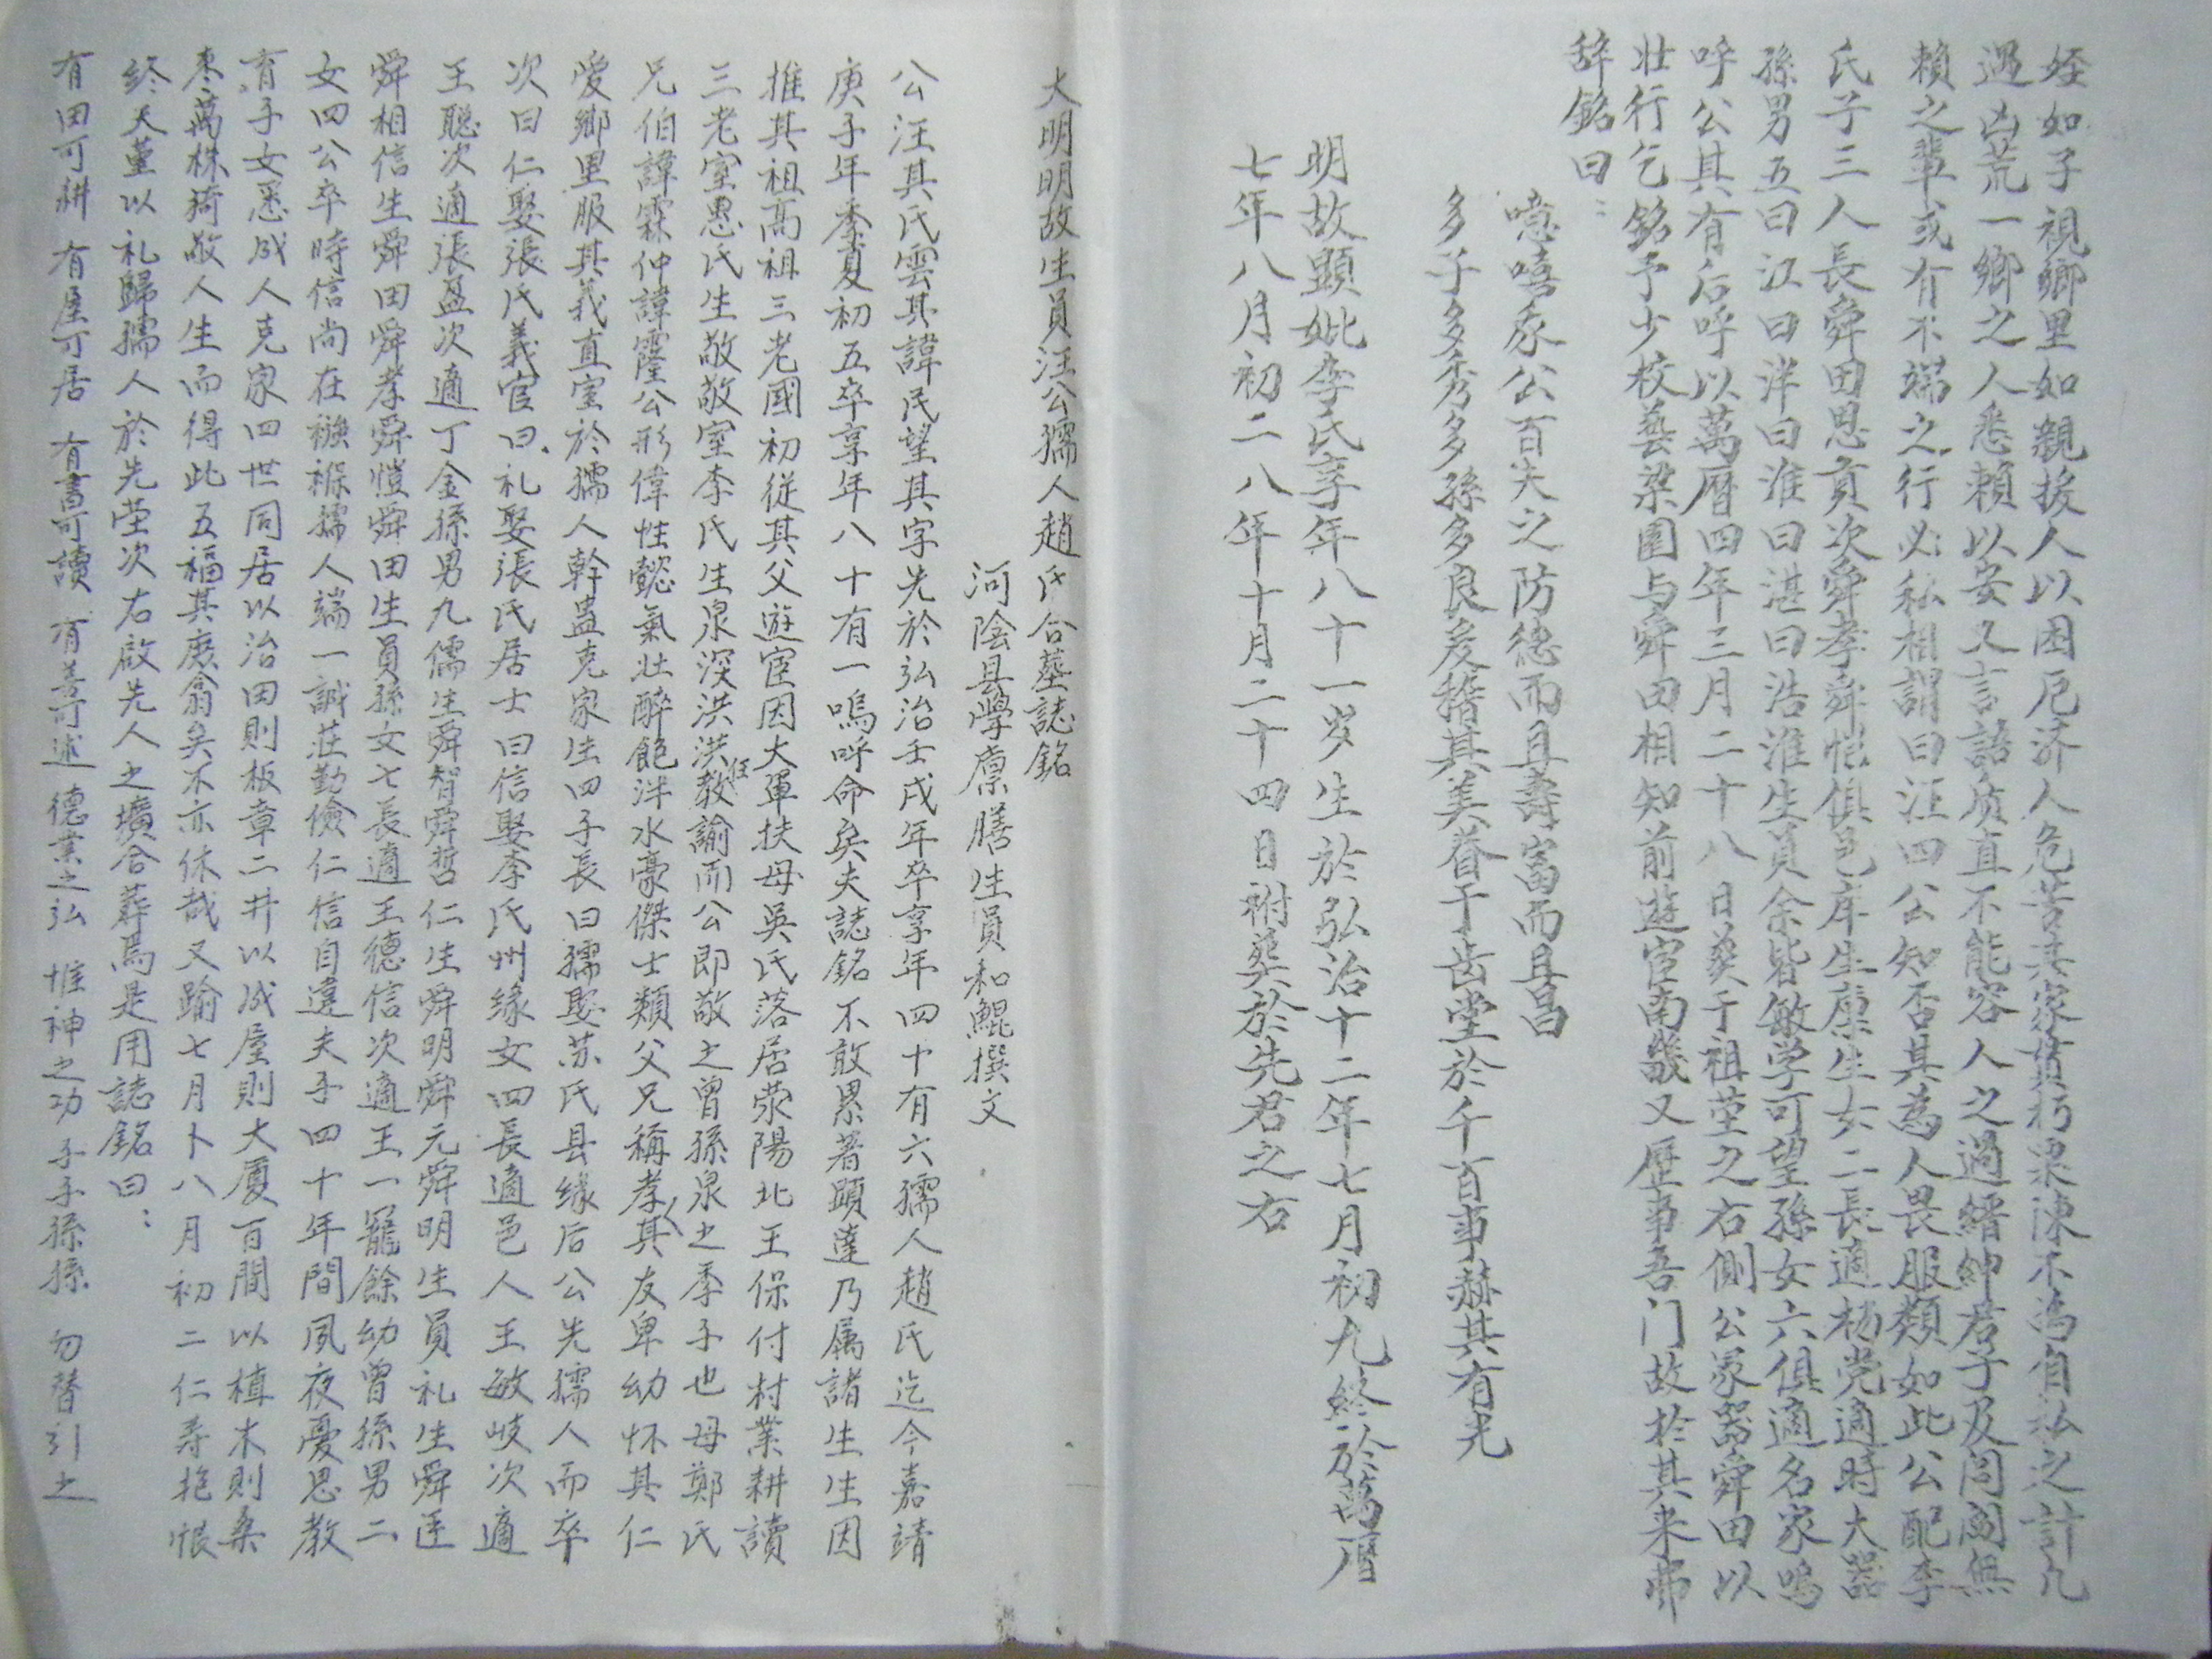 姪如子視鄉里如親拔人以困厄济人危苦其家貫朽粟陳不為自私之計凡
遇凶荒一鄉之人悉賴以安又言語质直不能容人之過縉紳君子及閭閻無
賴之輩或有不端之行必私相謂曰汪四公知否其為人畏服類如此公配李
氏子三人長舜田恩貢次舜孝舜愷俱邑庠生廪生女二長適楊党適時大器
孫男五曰江曰洋曰淮曰湛曰浩淮生員余皆敏学可望孫女六俱適名家嗚
呼公其有后呼以萬曆四年三月二十八日葵于祖茔之右側公冢嗣舜田以
壮行乞銘予少校藝梁園与舜田相知前遊宦南畿又歷事吾门故於其来弗
辞銘曰：
噫嘻汞公百夫之防德而且壽富而且昌
多子多秀多孫多良爰稽其美眷于齿堂於千百事赫其有光
明故顕妣李氏享年八十一岁生於弘治十二年七月初九終於萬曆
七年八月初二八年十月二十四日祔葵於先君之右
大明明故生員汪公孺人趙氏合墓誌銘
河陰县學廪膳生員和鯤撰文
公汪其氏雲其諱民望其字先於弘治壬戌年卒享年四十有六孺人趙氏迄今嘉靖
庚子年季夏初五卒享年八十有一嗚呼命矣夫誌銘不敢累著顕達乃属諸生生因
推其祖高祖三老國初從其父遊宦因大軍扶母吳氏落居荥陽北王保付村業耕讀
三老室惠氏生敬敬室李氏生泉深洪洪任教諭而公即敬之曾孫泉之季子也母鄭氏
兄伯諱霖仲諱霳公形偉性懿氣壮醉飽泮水豪傑士類父兄稱孝其友卑幼怀其仁
愛鄉里服其義直室於孺人幹蛊克家生四子長曰孺娶苏氏县缘后公先孺人而卒
次曰仁娶張氏義官曰礼娶張氏居士曰信娶李氏州缘女四長適邑人王敏岐次適
王聪次適張盈次適丁金孫男九儒生舜智舜哲仁生舜明舜元舜明生員礼生舜匡
舜相信生舜田舜孝舜愷舜田生員孫女七長適王德信次適王一寵餘幼曾孫男二
女四公卒時信尚在襁褓孺人端一誠莊勤儉仁信自違夫子四十年間夙夜憂思教
育子女悉成人克家四世同居以治田則板章二井以成屋則大廈百間以植木則桑
枣萬株猗敬人生而得此五福其庶翕矣不亦休哉又踰七月卜八月初二仁寿抱恨
終天堇以礼歸孺人於先茔次右啟先人之壙合葬焉是用誌銘曰：
有田可耕 有屋可居 有書可讀 有善可述 德業之弘 惟神之功 子子孫孫 勿替引之